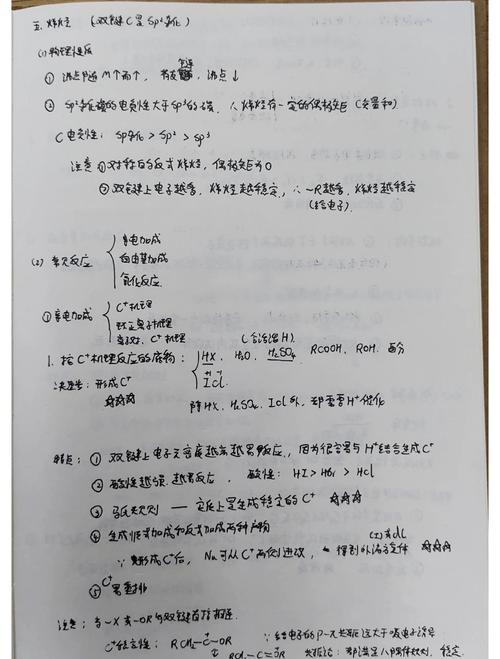 五. 烯烃 (双键C是sp²杂化)
(1) 物理性质
① 沸点随M个而个, 支链, 沸点↓
② sp²杂化碳的电负性大于sp³的碳, ∴烯烃有一定的偶极矩 (矢量和)
C电负性: sp杂化 > sp² > sp³
注意 ①对称的反式烯烃, 偶极矩为0
②双键上电子越多, 烯烃越稳定, ∴ -R越多, 烯烃越稳定
(给电子)
(2) 常见反应 亲电加成
自由基加成
氧化反应
①亲电加成 C⁺机理
机理
C⁺机理
1. 按C⁺机理反应的底物: HX, H₂O, H₂SO₄, RCOOH, ROH,
(含活泼H)
ICl
决速步: 形成C⁺
☆☆☆
除HX, H₂SO₄, ICl外, 都需要H⁺催化
特点: ① 双键上电子云密度越大越易反应, 因为很容易与H⁺结合生成C⁺
② 酸性越强越易反应, 酸性: HI > HBr > HCl
③ 马氏规则 —— 实质上是生成稳定的C⁺ ☆☆☆
④ 生成顺式加成和反式加成两种产物
∵ 形成C⁺后, Nu可从C⁺两侧进攻, 得到外消旋体 ☆☆☆
(±)或dl
⑤ C⁺易重排
注意: 当-X或-OR与双键直接相连
C⁺稳定性: RCH₂-C⁺-OR ∵ 给电子的p-π共轭远大于吸电子诱导
RCH₂-C=O⁺R 共振论: 都满足八隅体规则, 稳定.